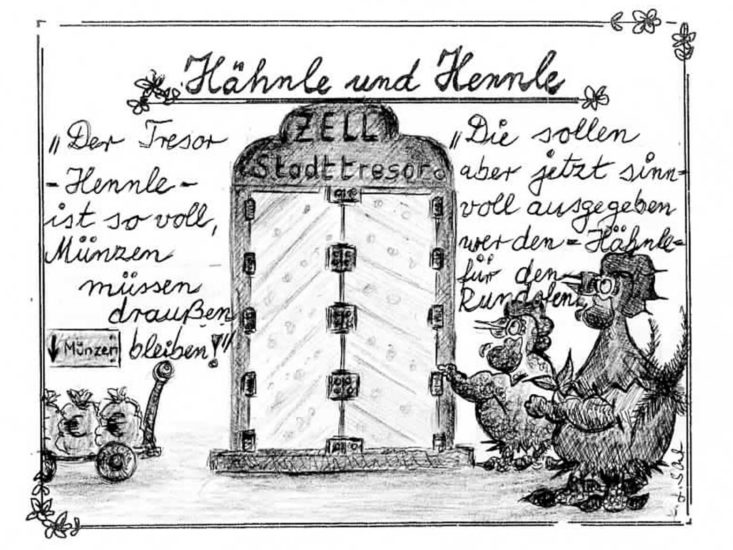 Hähnle und Hennle
„Der Tresor
-Hennle-
ist so voll,
Münzen
müssen
draußen
bleiben!"
ZELL
Stadttresor
„Die sollen
aber jetzt sinn-
voll ausgegeben
werden - Hähnle -
für den
Rundofen
Münzen
€ €